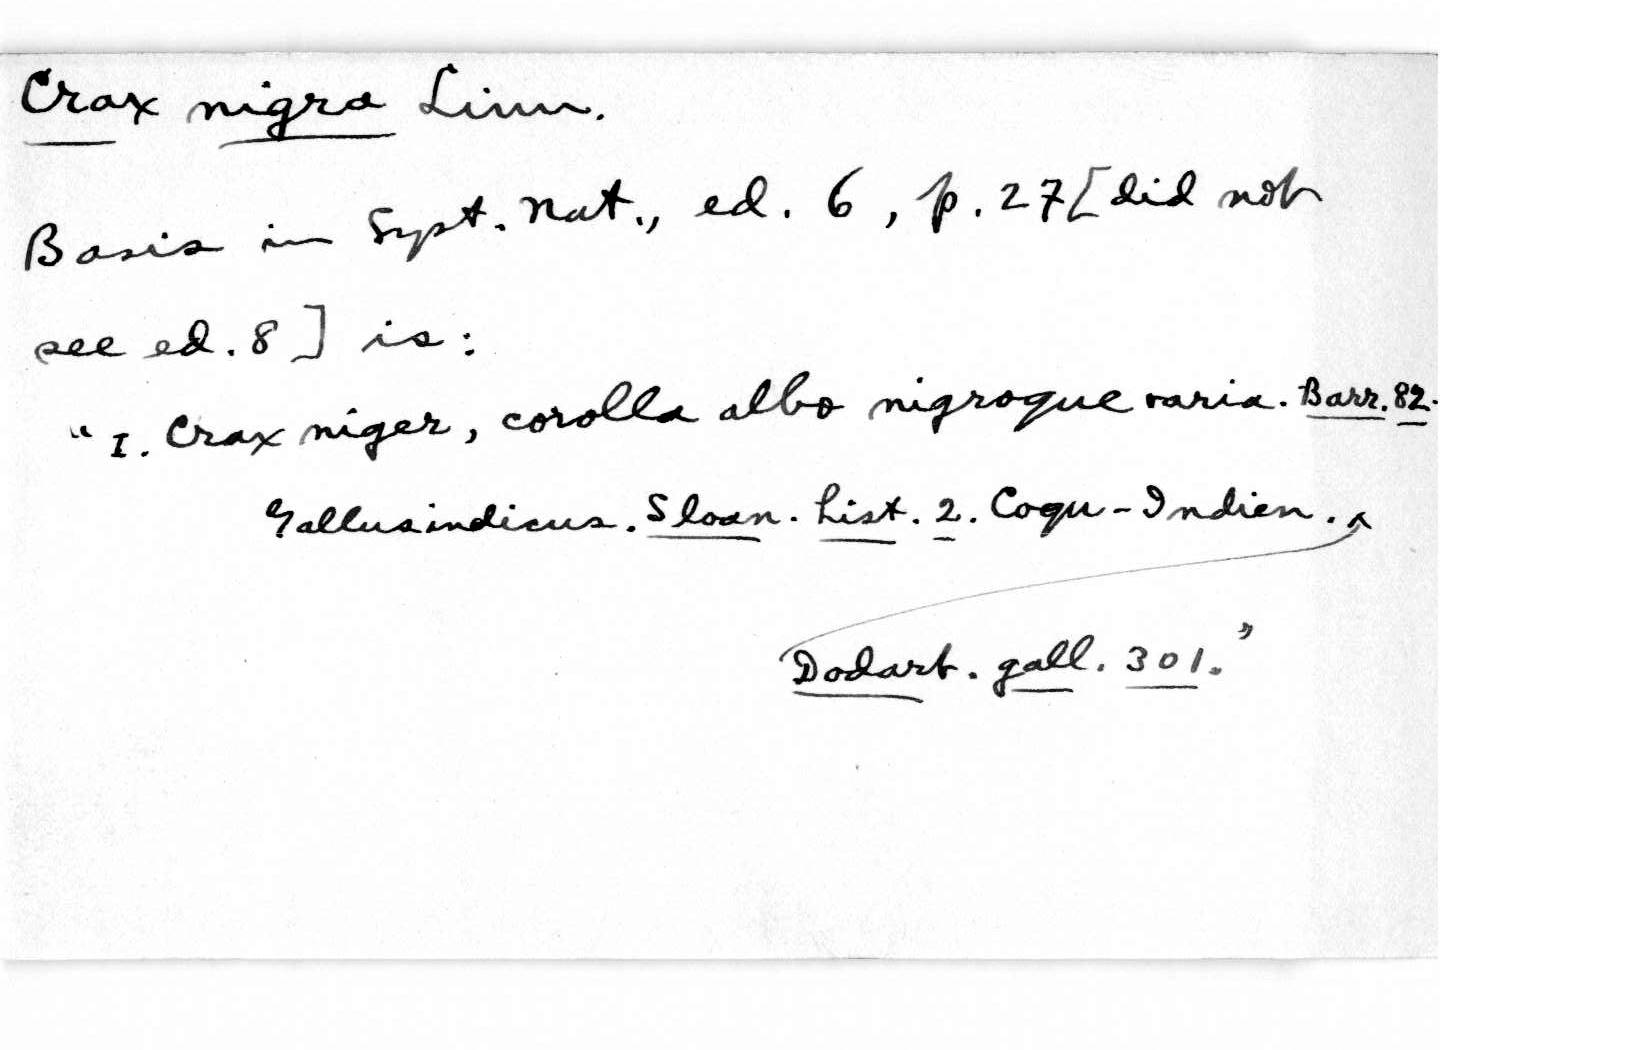 Crax nigra Linn.
Basis in Syst. Nat., ed. 6, p. 27 [did not
see ed. 8] is:
"1. Crax niger, corolla albo nigroque varia. Barr. 82.
Gallus indicus. Sloan. hist. 2. Coqu-Indien.
Dodart. gall. 301."